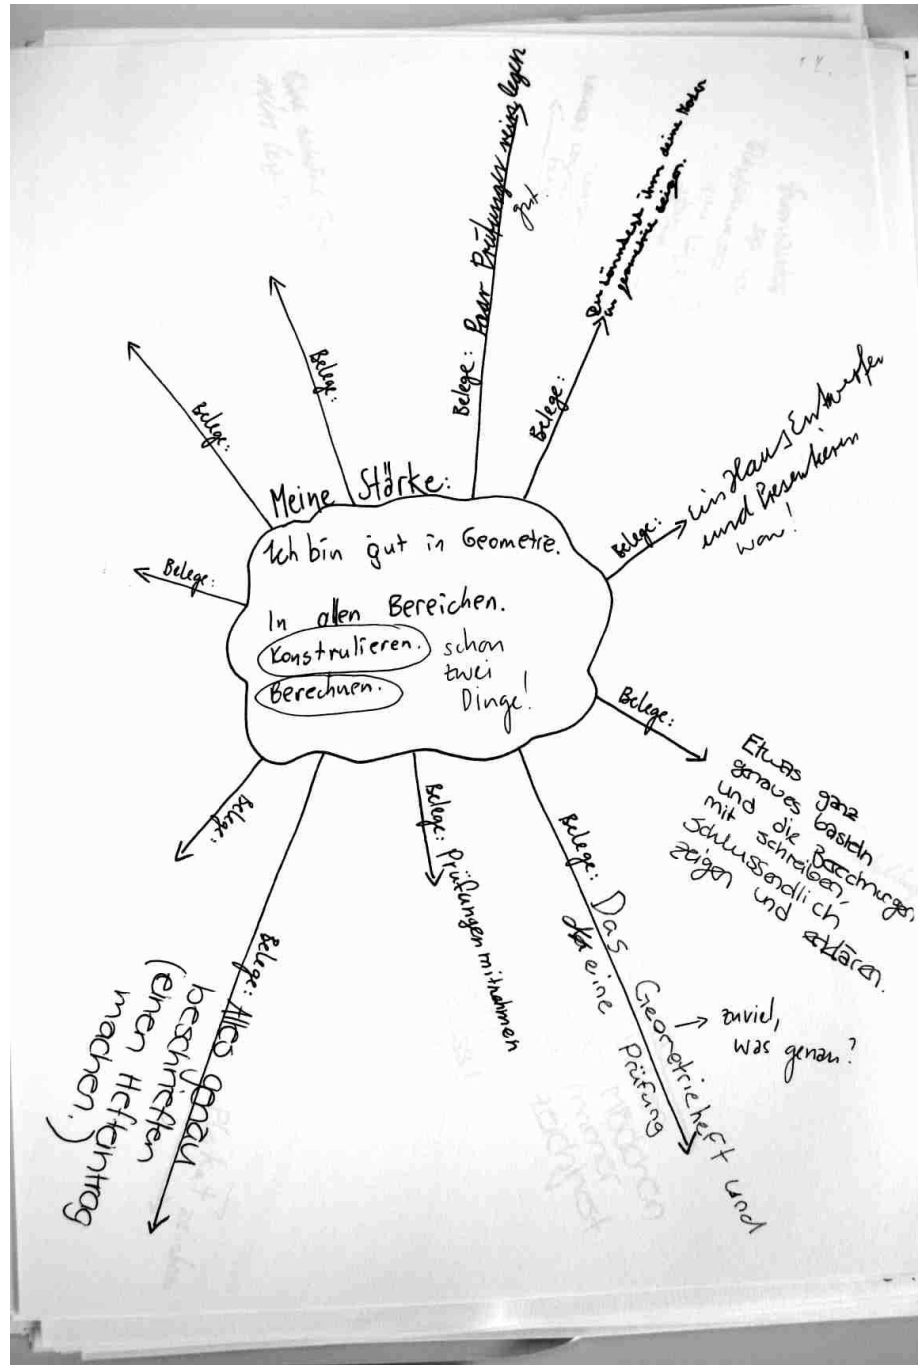 Meine Stärke:
Ich bin gut in Geometrie.
In allen Bereichen.
Konstruieren.
Berechnen.
schon
zwei
Dinge!
Belege:
Belege:
Belege:
Belege: Paar Prüfungen reins legen
gut
Belege:
Du könntest ihm deine Noten
in geometrie zeigen.
Belege:
ein Haus Entwerfen
und Presentieren
wow!
Belege:
Etwas ganz
genaues basteln
und die Berechnungen
mit schreiben,
schlussendlich
zeigen und erklären.
Belege: Das Geometrieheft und
eine Prüfung
→ zuviel,
was genau?
Belege: Prüfungen mitnahmen
Belege: Alles genau
beschrieften
(einen Hefteintrag
machen.)
Belege: